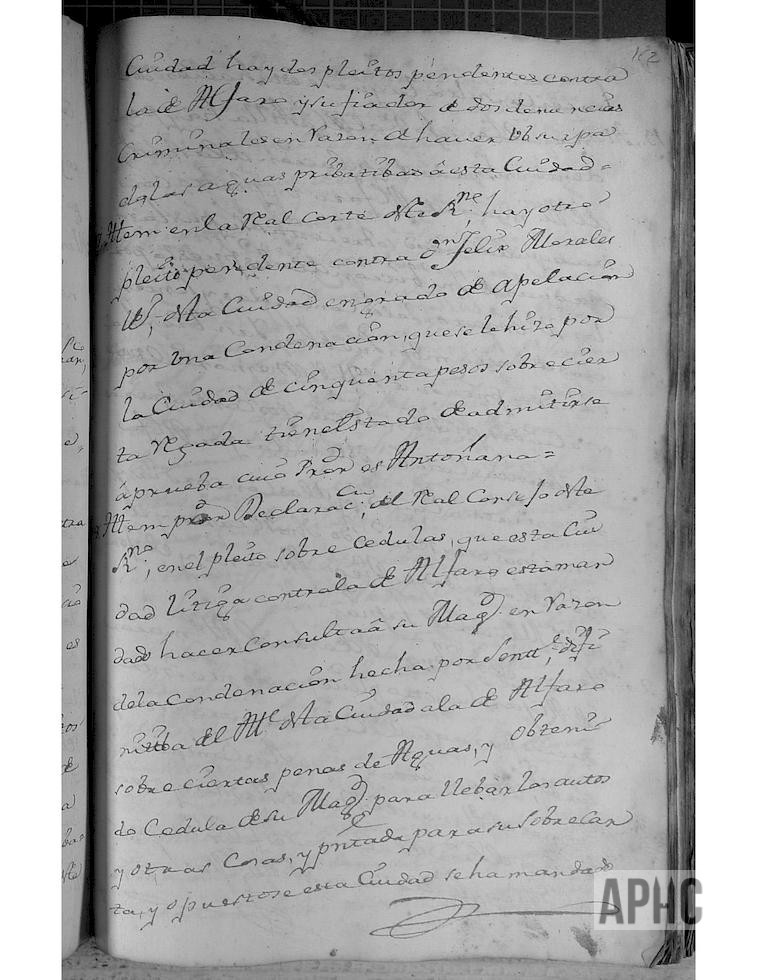 162
Ciudad hay dos pleitos pendentes contra
la de Alfaro y su fiador de dos denuncias
Criminales en razon de haver vbsurpa
do las aguas pribatibas â esta Ciudad =
Ittem en la Real Corte deste Rno, hay otro
pleito pendente contra dn Felix Morales
vo, desta Ciudad en grado de apelacion
por vna Condenacion, que se le hizo por
la Ciudad de cinquenta pesos sobre cier
ta regada tiene estado de admitirse
â prueba cuio Pror es Antoñana =
Ittem por Declaracion, del Real Consejo deste
Rno, en el pleito sobre Cedulas, que esta Ciu
dad litiga contra la de Alfaro esta man
dado hacer Consulta â su Magd en razon
de la Condenacion hecha por Senta, difi
nitiba del Alle desta Ciudad a la de Alfaro
sobre ciertas penas de Aguas, y obteni
do Cedula de su Magd para llebar los autos
y otras Cosas, y pntada para su sobrecar
ta, y opuestose esta Ciudad se ha mandado
APHC